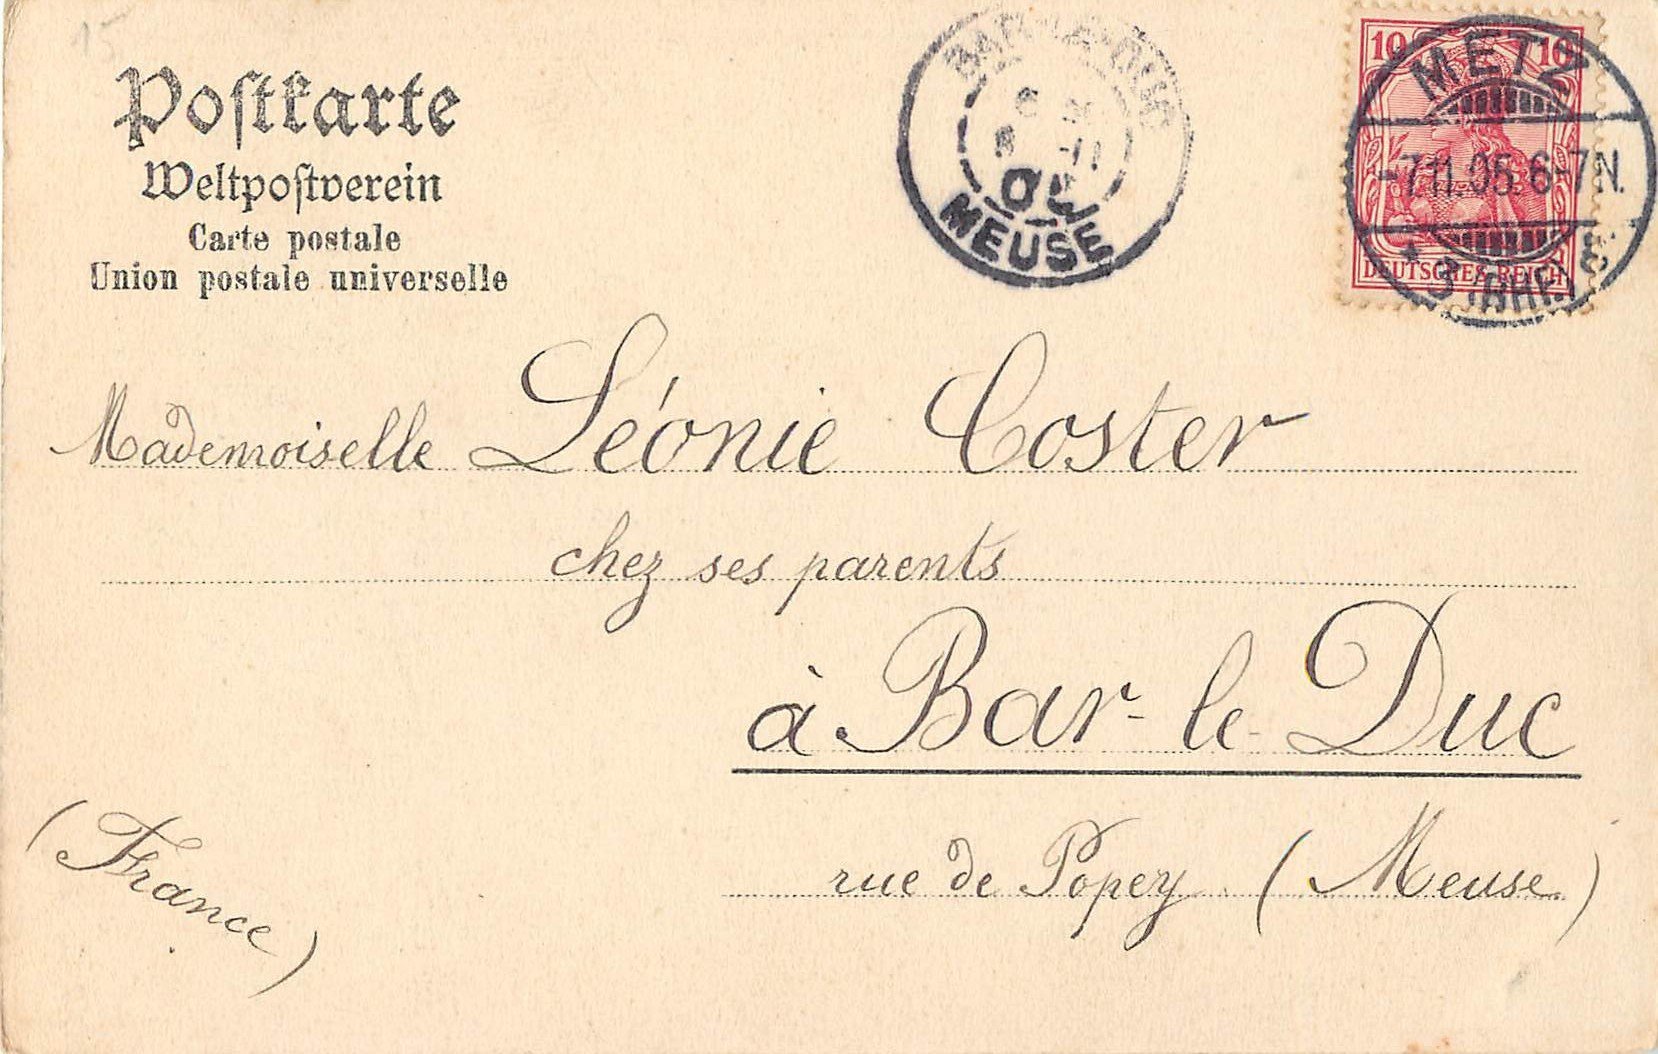 15
Postkarte
Weltpostverein
Carte postale
Union postale universelle
BAR-LE-DUC
MEUSE
10 10
DEUTSCHES REICH
METZ
-7.11.05.6-7N.
* 3 (BHF.)
Mademoiselle Léonie Coster
chez ses parents
à Bar-le-Duc
rue de Popey (Meuse)
(France)